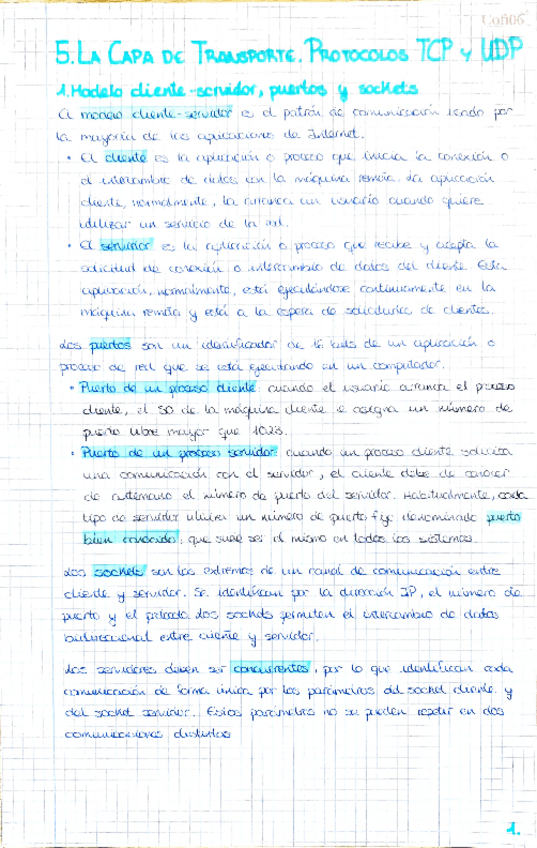 Coñ06
5. LA CAPA DE TRANSPORTE. PROTOCOLOS TCP Y UDP
1. Modelo cliente-servidor, puertos y sockets
El modelo cliente-servidor es el patrón de comunicación usado por
la mayoría de las aplicaciones de Internet.
• El cliente es la aplicación o proceso que inicia la conexión o
el intercambio de datos con la máquina remota. La aplicación
cliente, normalmente, la arranca un usuario cuando quiere
utilizar un servicio de la red.
• El servidor es la aplicación o proceso que recibe y acepta la
solicitud de conexión o intercambio de datos del cliente. Esta
aplicación, normalmente, está ejecutándose continuamente en la
máquina remota y está a la espera de solicitudes de clientes.
Los puertos son un identificador de 16 bits de un aplicación o
proceso de red que se está ejecutando en un computador.
• Puerto de un proceso cliente: cuando el usuario arranca el proceso
cliente, el SO de la máquina cliente le asigna un número de
puerto libre mayor que 1023.
• Puerto de un proceso servidor: cuando un proceso cliente solicita
una comunicación con el servidor, el cliente debe de conocer
de antemano el número de puerto del servidor. Habitualmente, cada
tipo de servidor utiliza un número de puerto fijo denominado puerto
bien conocido, que suele ser el mismo en todos los sistemas.
Los sockets son los extremos de un canal de comunicación entre
cliente y servidor. Se identifican por la dirección IP, el número de
puerto y el protocolo. Los sockets permiten el intercambio de datos
bidireccional entre cliente y servidor.
Los servidores deben ser concurrentes, por lo que identifican cada
comunicación de forma única por los parámetros del socket cliente y
del socket servidor. Estos parámetros no se pueden repetir en dos
comunicaciones distintas
1.